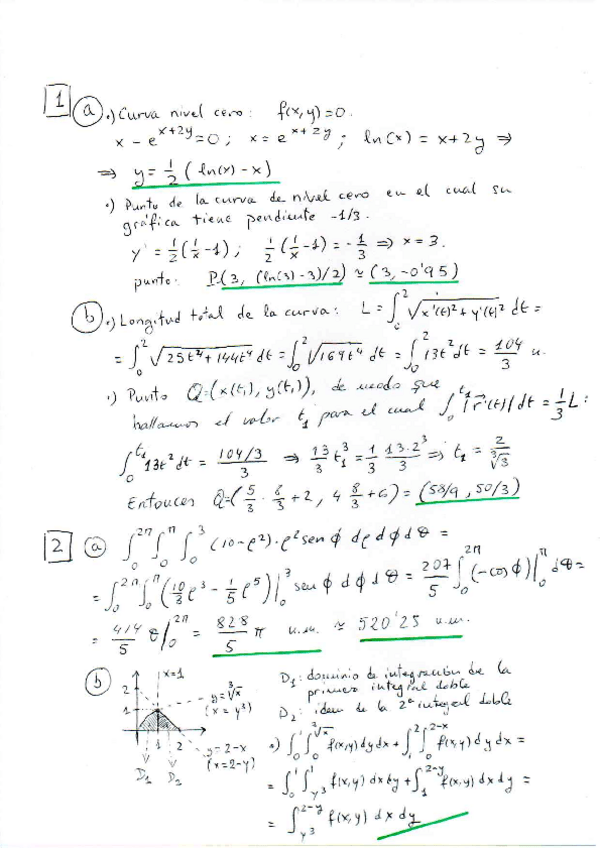 1 a ·) Curva nivel cero: f(x,y)=0.
x - e^{x+2y}=0; x = e^{x+2y}; ln(x) = x+2y ⇒
⇒ y = 1/2 (ln(x) - x)
·) Punto de la curva de nivel cero en el cual su
gráfica tiene pendiente -1/3.
y' = 1/2 (1/x - 1); 1/2 (1/x - 1) = -1/3 ⇒ x = 3.
punto: P(3, (ln(3)-3)/2) ≈ (3, -0'95)
b ·) Longitud total de la curva: L = ∫_0^2 √(x'(t)^2 + y'(t)^2) dt =
= ∫_0^2 √(25t^4 + 144t^4) dt = ∫_0^2 √(169t^4) dt = ∫_0^2 13t^2 dt = 104/3 u.
·) Punto Q=(x(t_1), y(t_1)), de modo que
hallamos el valor t_1 para el cual ∫_0^{t_1} |r'(t)| dt = 1/3 L:
∫_0^{t_1} 13t^2 dt = (104/3)/3 ⇒ 13/3 t_1^3 = 1/3 · 13·2^3/3 ⇒ t_1 = 2/∛3
Entonces Q=(5/3 · 8/3 + 2, 4 8/3 + 6) = (58/9, 50/3)
2 a ∫_0^{2π} ∫_0^π ∫_0^3 (10-ρ^2)·ρ^2 sen ϕ dρ dϕ dθ =
= ∫_0^{2π} ∫_0^π (10/3 ρ^3 - 1/5 ρ^5)|_0^3 sen ϕ dϕ dθ = 207/5 ∫_0^{2π} (-cos ϕ)|_0^π dθ =
= 414/5 θ|_0^{2π} = 828/5 π u.m. ≈ 520'25 u.m.
b
x=1
2
1
y=∛x
(x = y^3)
1 2
y=2-x
(x=2-y)
D_1 D_2
D_1: dominio de integración de la
primera integral doble
D_2: idem de la 2ª integral doble
·) ∫_0^1 ∫_0^{∛x} f(x,y) dy dx + ∫_1^2 ∫_0^{2-x} f(x,y) dy dx =
= ∫_0^1 ∫_{y^3}^1 f(x,y) dx dy + ∫_1^{2-y} f(x,y) dx dy =
= ∫_{y^3}^{2-y} f(x,y) dx dy